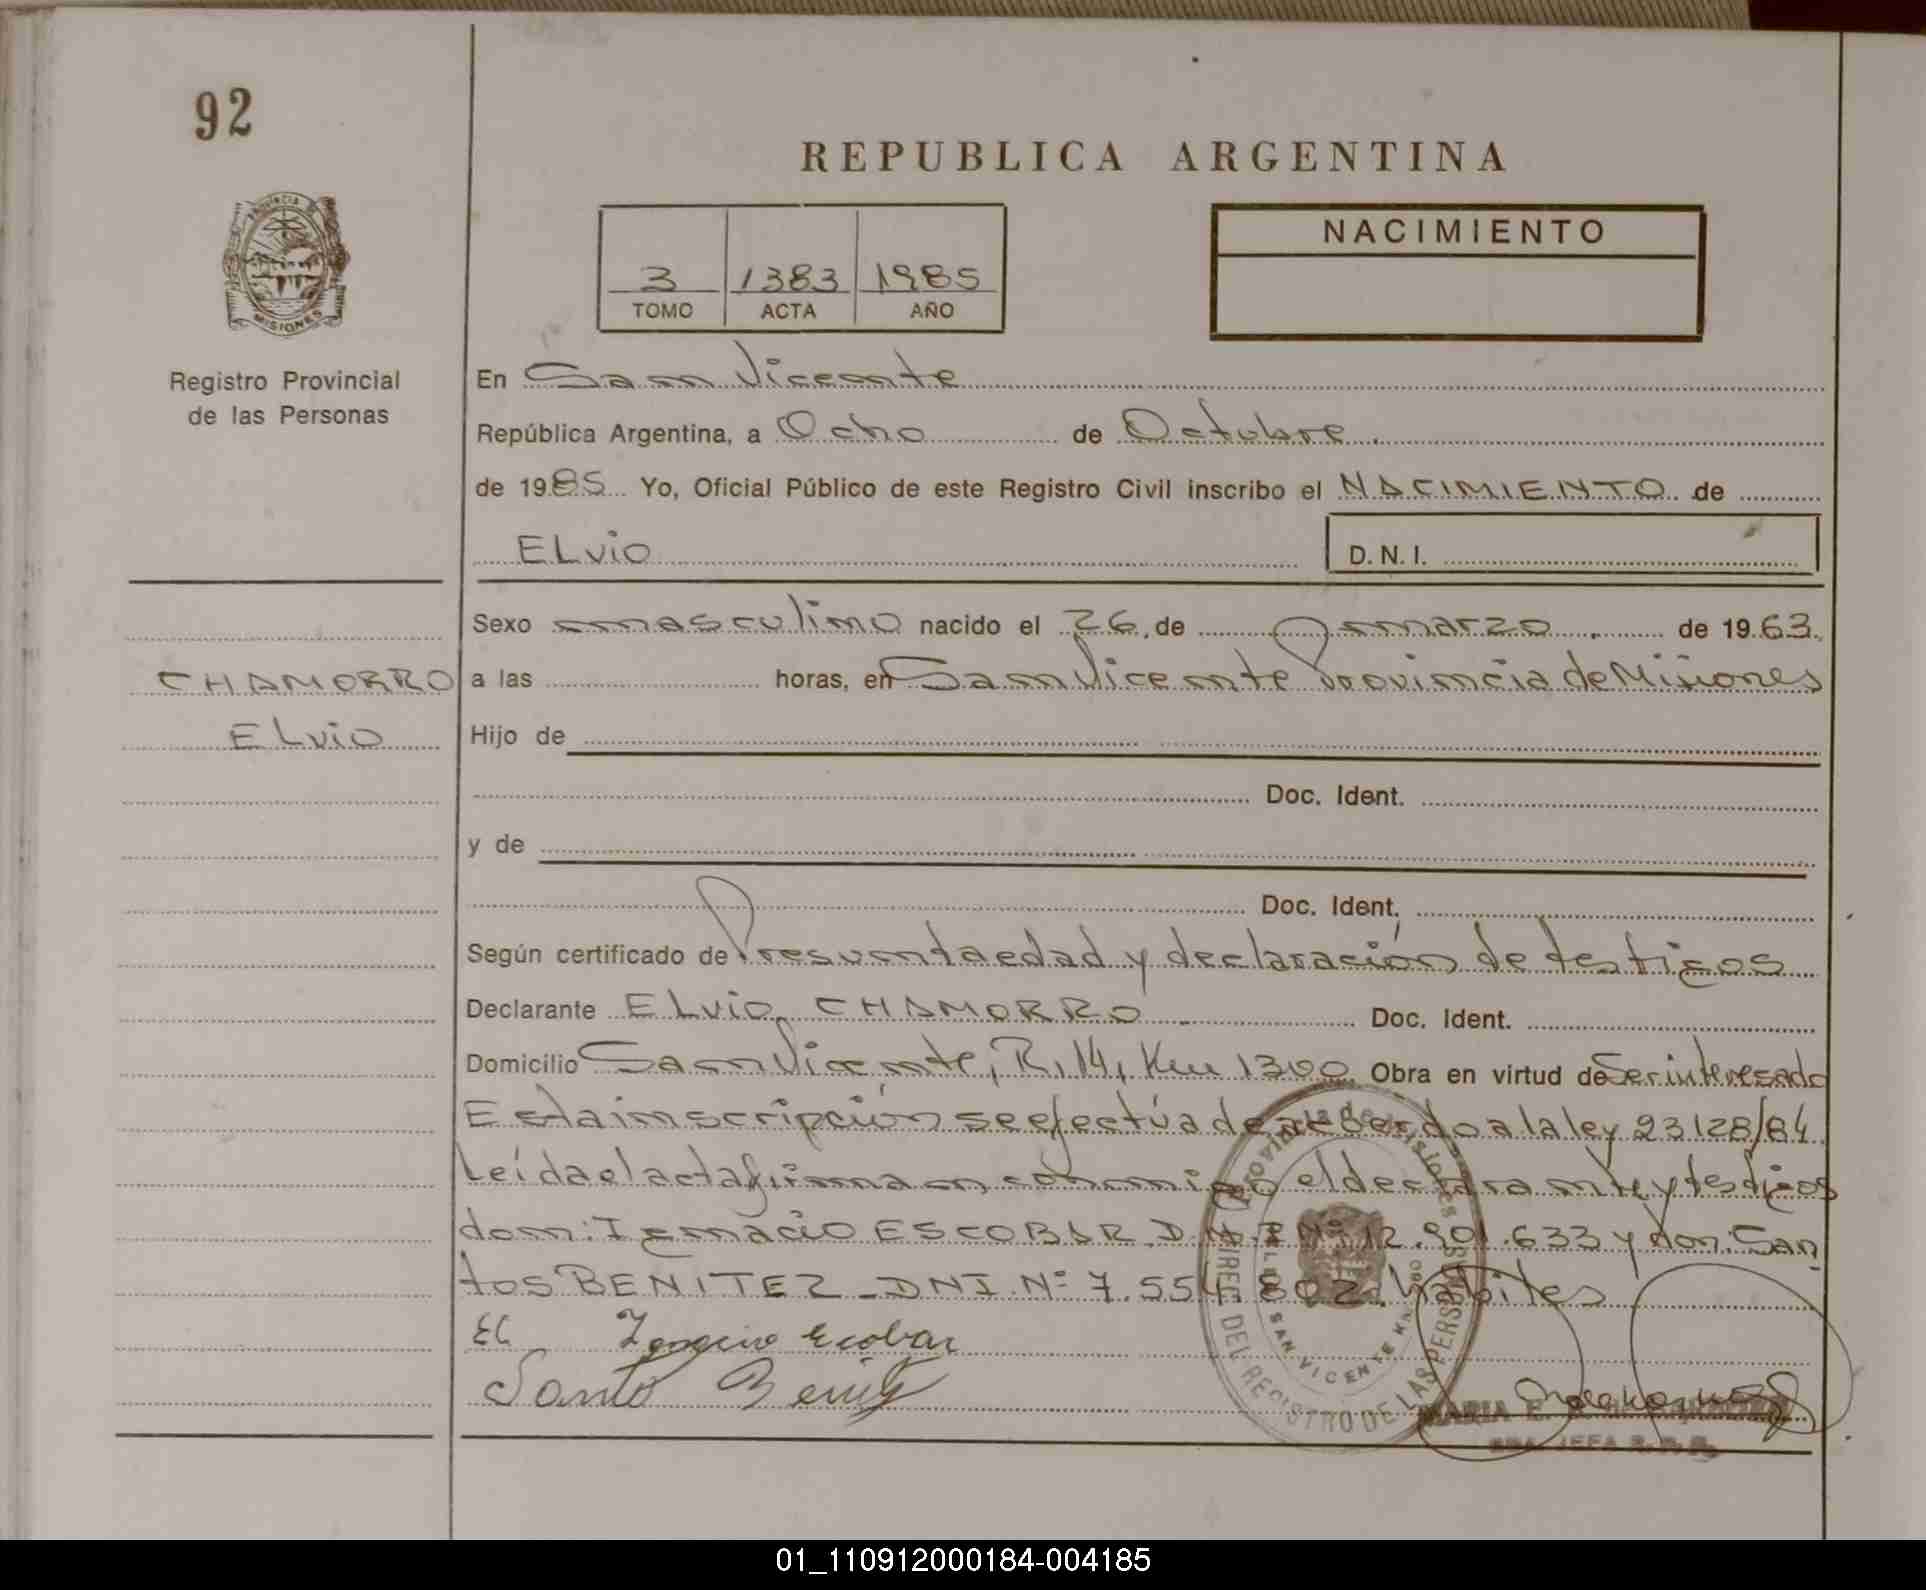 92
REPUBLICA ARGENTINA
PROVINCIA DE
MISIONES
NACIMIENTO
3 1383 1985
TOMO ACTA AÑO
Registro Provincial
de las Personas
En San Vicente
República Argentina, a Ocho de Octubre.
de 1985 Yo, Oficial Público de este Registro Civil inscribo el NACIMIENTO de
ELvio D.N.I.
Sexo masculino nacido el 26, de marzo. de 1963.
CHAMORRO
ELvio
a las horas, en San Vicente Provincia de Misiones
Hijo de
Doc. Ident.
y de
Doc. Ident.
Según certificado de Presunta edad y declaración de testigos
Declarante ELvio CHAMORRO Doc. Ident.
Domicilio San Vicente, R, 14, Km 1300 Obra en virtud de Ser interesado
Esta inscripción se efectúa de acuerdo a la ley 23128/84.
Leída el acta firman conmigo el declarante y testigos
don: Ignacio ESCOBAR D.N.I Nº 12.901.633 y don: San
tos BENITEZ - DNI. Nº 7.554.802. habites
EC Ignacio Escobar
Santo Benitz
Provincia de Misiones
DIREC DEL REGISTRO DE LAS PERSONAS
SAN VICENTE
MARIA E.
SRA. JEFA R.P.P.
01_110912000184-004185